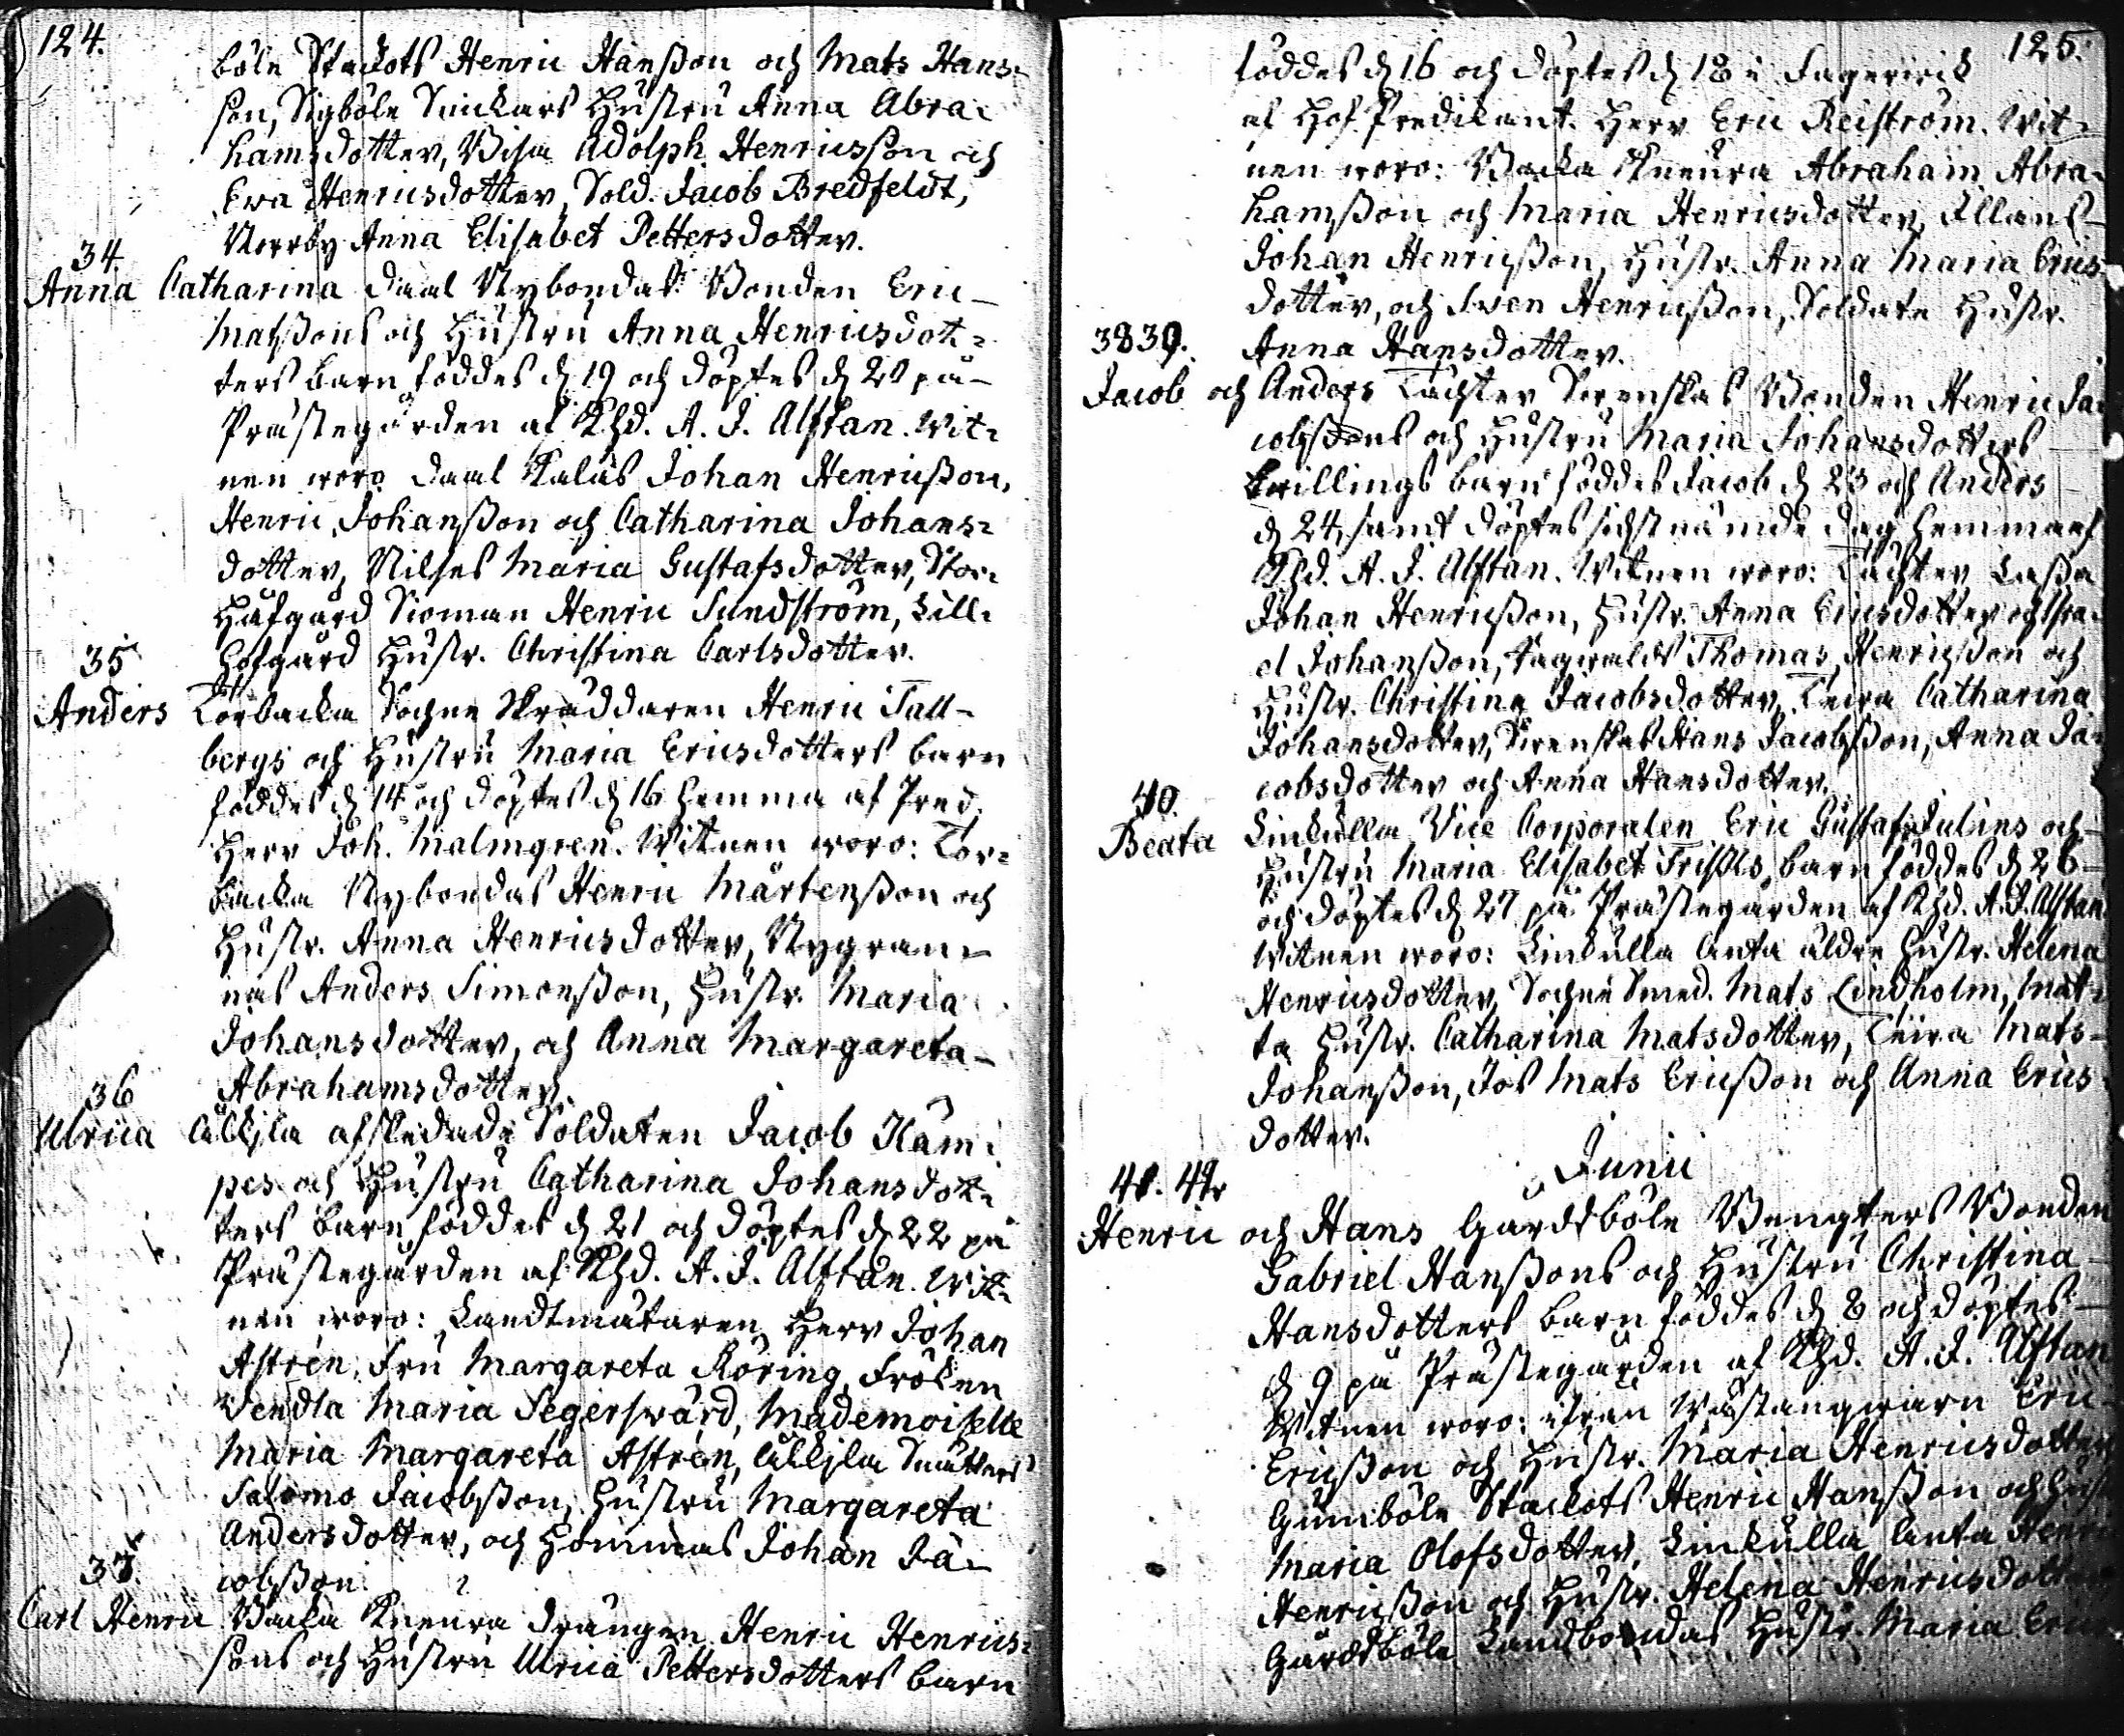 124.
böle Stackots Henric Hanßon och Mats Hans-
son, Sigböle Snickars Hustru Anna Abra-
hamsdotter, Bisa Adolph Henricsson och
Ewa Henricsdotter, Sold. Jacob Bredfeldt,
Norrby Anna Elisabet Pettersdotter.
34
Anna Catharina Daal Nybondas Bonden Eric
Matsßons och Hustru Anna Henricsdot-
ters barn föddes d. 19 och döptes d. 20 på
Prästegården af Khd. A. J. Alftan. Wit-
nen woro Daal Kalas Johan Henricßon,
Henric Johanßon och Catharina Johans-
dotter, Nilses Maria Gustafsdotter, Stor
Hofgård Sioman Henric Sundström, Lill-
Hofgård Hustr. Christina Carlsdotter.
35
Anders Torbacka Sockne Skräddaren Henric Tall-
bergs och Hustru Maria Ericsdotters barn
föddes d. 14 och döptes d. 16 hemma af Pred.
Herr Joh. Malmgren. Witnen woro: Tor-
backa Nybondas Henric Mårtensßon och
Hustr. Anna Henricsdotter, Nygran-
nas Anders Simonßon, Hustr. Maria
Johansdotter, och Anna Margareta
Abrahamsdotter.
36
Ulrica afskedade Soldaten Jacob Käm-
pes och Hustru Catharina Johansdot-
ters barn föddes d. 21 och döptes d. 22 på
Prästegården af Khd. A. J. Alftan. Wit-
nen woro: Landtmätaren Herr Johan
Astrén, Fru Margareta Röring, Fröken
Vendla Maria Segerswärd, Mademoiselle
Maria Margareta Astrén,
Salomo Jacobsßon, Hustru Margareta
Andersdotter, och Hommas Johan Ja-
cobsßon.
37
Carl Henric Backa Kneura Drängen Henric Henrics-
sons och Hustru Ulrica Pettersdotters barn
125.
föddes d. 16 och döptes d. 18 i Fagerwik
af Hof Predikant. Herr Eric Reiström. Wit-
nen woro: Backa Kneura Abraham Abra-
hamsßon och Maria Henricsdotter, Illans
Johan Henricßon, Hustr. Anna Maria Erics-
dotter, och Swen Henricßon, Soldate Hustr.
Anna Hansdotter.
38 39.
Jacob och Anders Täckter Swenskas Bonden Henric Ja-
cobsßons och Hustru Maria Johansdotters
twillings barn föddes Jacob d. 23 och Anders
d. 24, samt döptes sistnämde dag hemma af
Khd. A. J. Alftan. Witnen woro: Täckter Lassa
Johan Henricßon, Hustr. Anna Ericsdotter och Isra-
el Johanßon, Sagwalds Thomas Henricßon och
Hustr. Christina Jacobsdotter, Teira Catharina
Johansdotter, Swenskas Hans Jacobsßon, Anna Ja-
cobsdotter och Anna Hansdotter.
40.
Beata Linkulla Vice Corporalen Eric Gustaf Julins och
Hustru Maria Elisabet Frisks barn föddes d. 26
och döptes d. 27 på Prästegården af Khd. A. J. Alftan.
Witnen woro: Linkulla Anta äldre Hustr. Helena
Henricsdotter, Sockne Smed. Mats Lindholm, Mat-
ta Hustr. Catharina Matsdotter, Teira Mats
Johanßon, Jos Mats Ericßon och Anna Erics-
dotter.
Junii
41. 42
Henric och Hans Gårdsböle Bengters Bonden
Gabriel Hanßons och Hustru Christina
Hansdotters barn föddes d. 8 och döptes
d. 9 på Prästegården af Khd. A. J. Alftan
Witnen woro: ifrån Wästangwarn Eric
Ericßon och Hustr. Maria Henricsdotter
Gunnböle Stackots Henric Hanßon och Hustr
Maria Olofsdotter, Linkulla Anta Henric
Henricßon och Hustr. Helena Henricsdotter
Gårdsböle Landbondas Hustr. Maria Erics